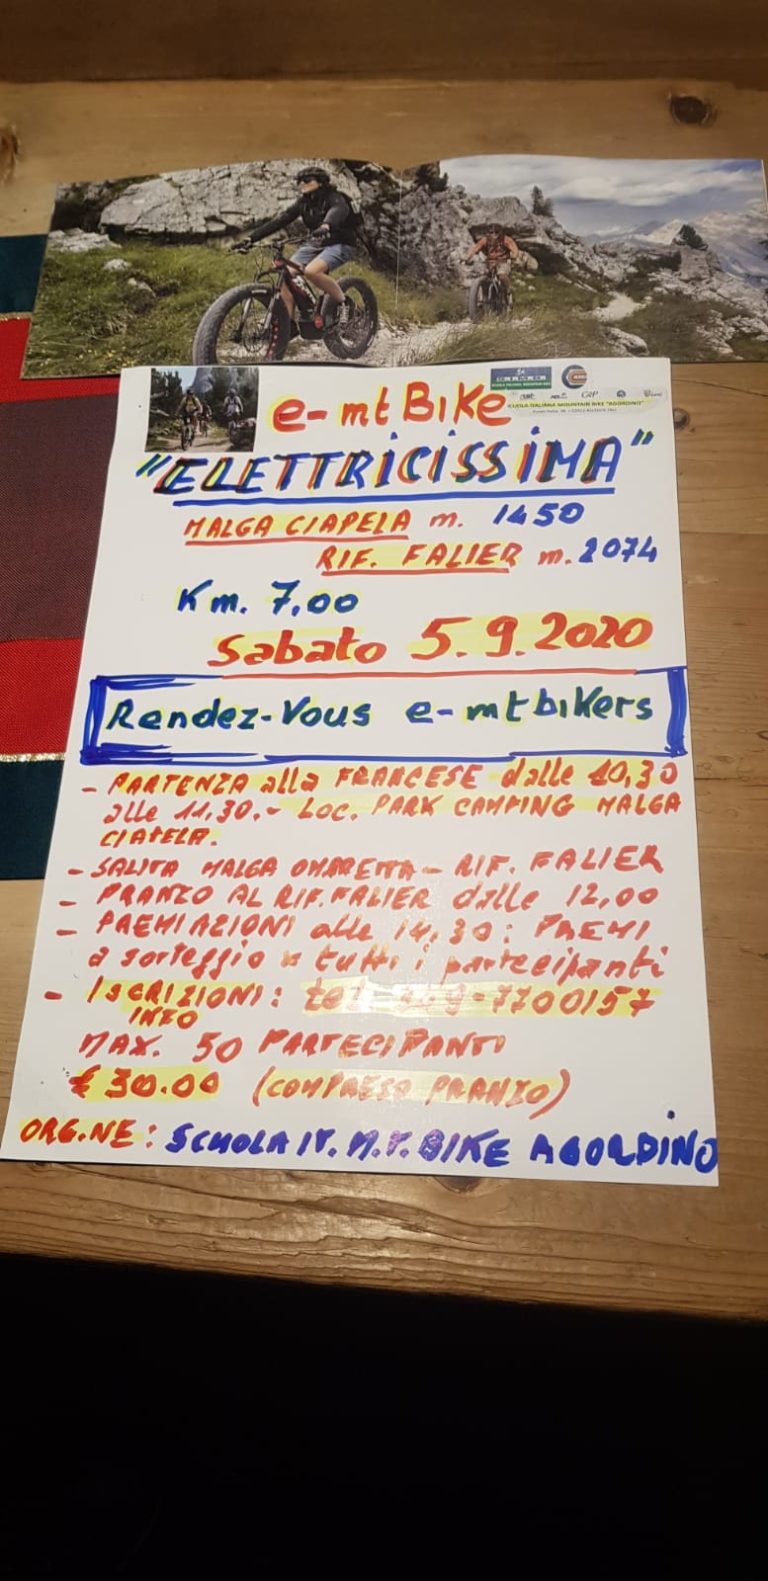 e-mtBike
SCUOLA ITALIANA MOUNTAIN BIKE "AGORDINO"
"ELETTRICISSIMA"
MALGA CIAPELA m. 1450
RIF. FALIER m. 2074
Km. 7,00
Sabato 5.9.2020
Rendez-Vous e-mtbikers
- PARTENZA alla FRANCESE dalle 10,30
alle 11,30.- LOC. PARK CAMPING MALGA
CIAPELA.
- SALITA MALGA OMBRETTA - RIF. FALIER
- PRANZO AL RIF. FALIER dalle 12,00
- PREMIAZIONI alle 14,30: PREMI
a sorteggio x tutti i partecipanti
- ISCRIZIONI: tel. 349-7700157
INFO
MAX. 50 PARTECIPANTI
€ 30.00 (COMPRESO PRANZO)
ORG.NE: SCUOLA IT. M.T. BIKE AGORDINO